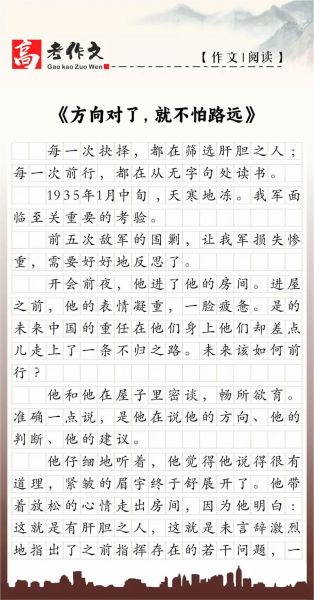 高考作文
Gao kao Zuo Wen
【作文|阅读】
《方向对了，就不怕路远》
每一次抉择，都在筛选肝胆之人；
每一次前行，都在从无字句处读书。
1935年1月中旬，天寒地冻。我军面
临至关重要的考验。
前五次敌军的围剿，让我军损失惨
重，需要好好地反思了。
开会前夜，他进了他的房间。进屋
之前，他的表情凝重，一脸疲惫。是的
未来中国的重任在他们身上他们却差点
儿走上了一条不归之路。未来该如何前
行？
他和他在屋子里密谈，畅所欲育。
准确一点说，是他在说他的方向、他的
判断、他的建议。
他仔细地听着，他觉得他说得很有
道理，紧皱的眉宇终于舒展开了。他带
着放松的心情走出房间，因为他明白：
这就是有肝胆之人，这就是未言辞激烈
地指出了之前指挥存在的若干问题，一